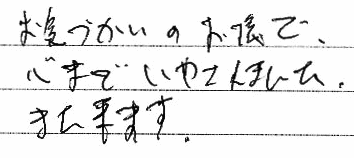 お気づかいのお陰で、
心までいやされました。
また来ます。